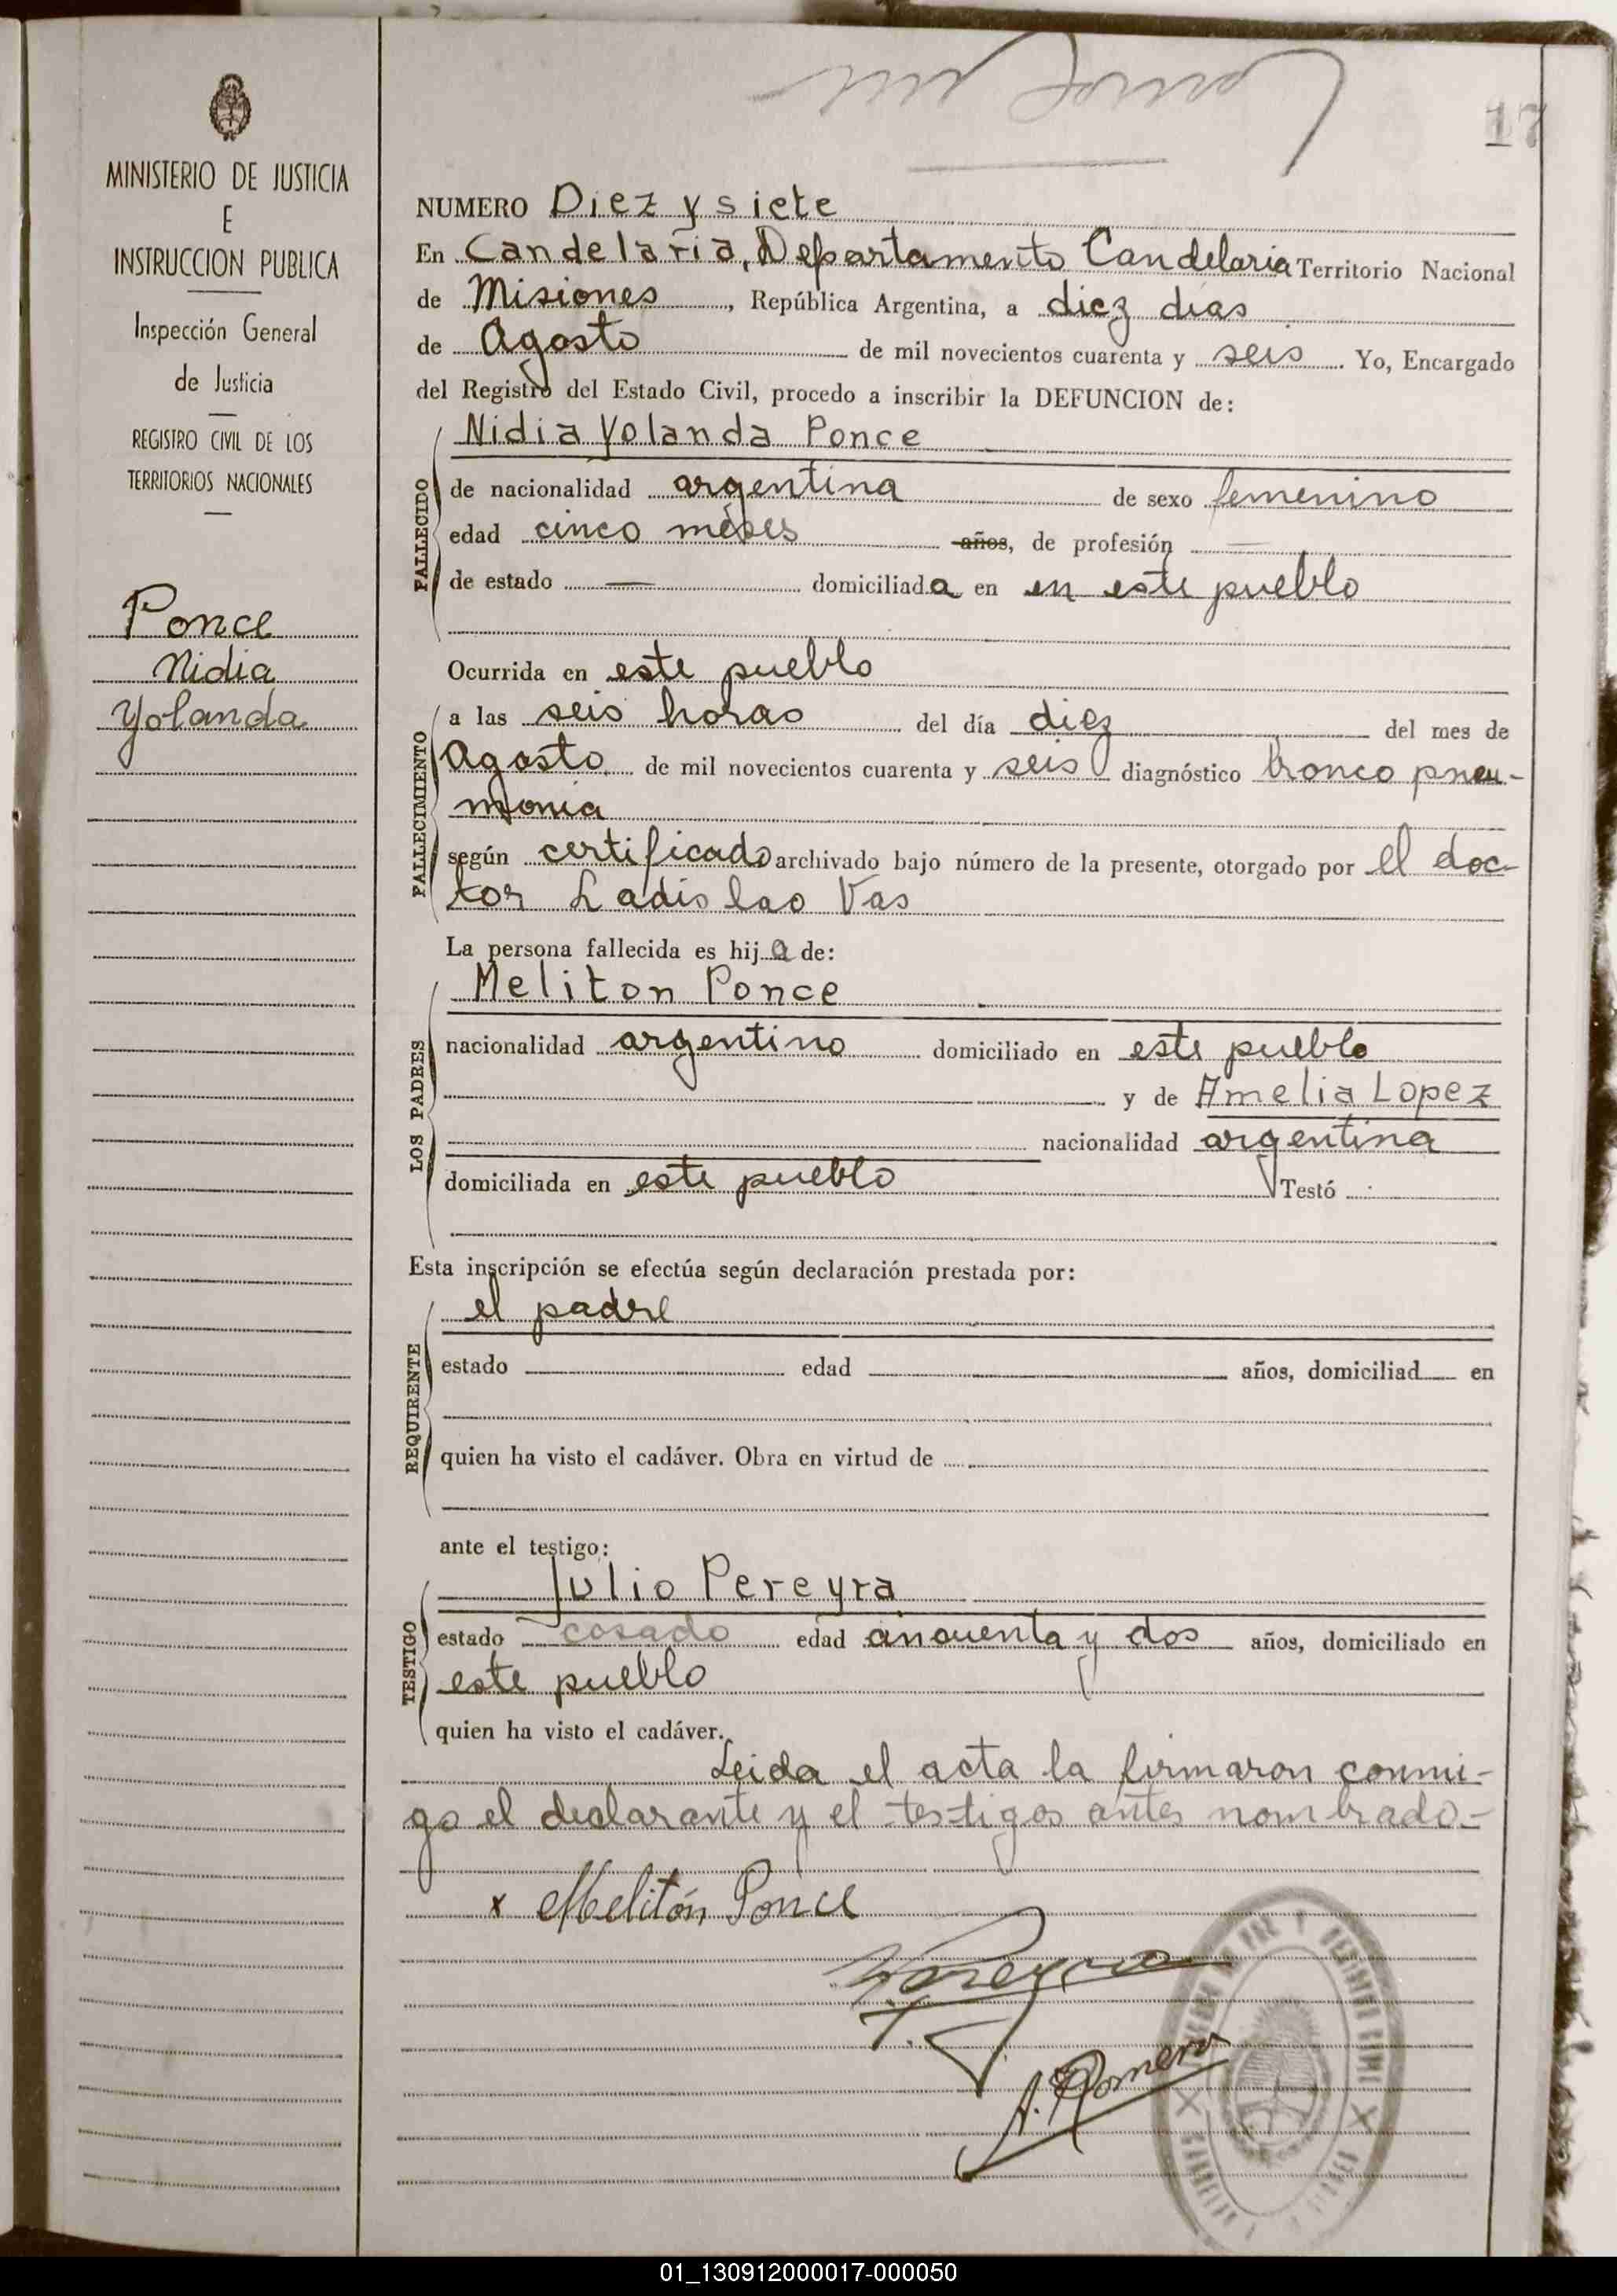 17
MINISTERIO DE JUSTICIA
E
INSTRUCCION PUBLICA
Inspección General
de Justicia
REGISTRO CIVIL DE LOS
TERRITORIOS NACIONALES
Ponce
Nidia
Yolanda
NUMERO Diez y siete
En Candelaria, Departamento Candelaria Territorio Nacional
de Misiones, República Argentina, a diez dias
de Agosto de mil novecientos cuarenta y seis. Yo, Encargado
del Registro del Estado Civil, procedo a inscribir la DEFUNCION de:
FALLECIDO
Nidia Yolanda Ponce
de nacionalidad argentina de sexo femenino
edad cinco meses años, de profesión —
de estado — domiciliada en en este pueblo
Ocurrida en este pueblo
FALLECIMIENTO
a las seis horas del día diez del mes de
Agosto de mil novecientos cuarenta y seis diagnóstico bronco pneu-
monia
según certificado archivado bajo número de la presente, otorgado por el doc-
tor Ladislao Vas
La persona fallecida es hija de:
LOS PADRES
Meliton Ponce
nacionalidad argentino domiciliado en este pueblo
y de Amelia Lopez
nacionalidad argentina
domiciliada en este pueblo Testó
Esta inscripción se efectúa según declaración prestada por:
REQUIRENTE
el padre
estado edad años, domiciliad en
quien ha visto el cadáver. Obra en virtud de
ante el testigo:
TESTIGO
Julio Pereyra
estado casado edad cincuenta y dos años, domiciliado en
este pueblo
quien ha visto el cadáver.
Leida el acta la firmaron conmi-
go el declarante y el testigos antes nombrado-
x Melitón Ponce
Pereyra
A. Romero
01_130912000017-000050